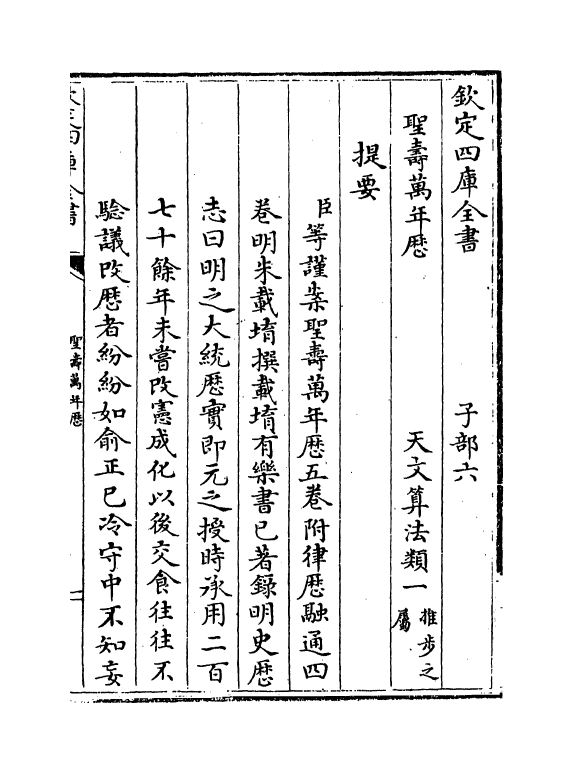 欽定四庫全書　子部六
聖壽萬年厯　天文算法類一推步之屬
提要
臣等謹案聖壽萬年厯五卷附律厯融通四
卷明朱載堉撰載堉有樂書已著錄明史厯
志曰明之大統厯實即元之授時承用二百
七十餘年未嘗改憲成化以後交食往往不
驗議改厯者紛紛如俞正已冷守中不知妄
欽定四庫全書
聖壽萬年厯
一